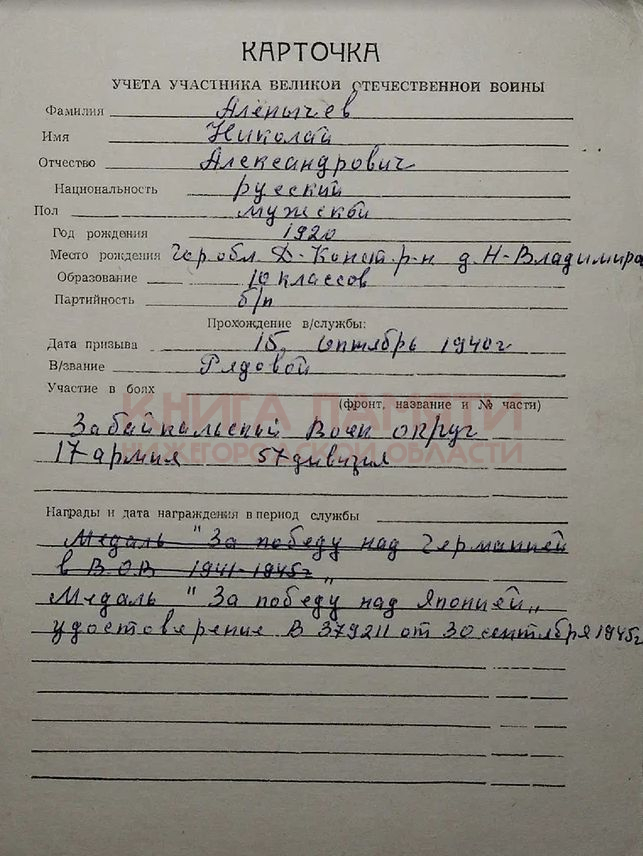 КАРТОЧКА
УЧЕТА УЧАСТНИКА ВЕЛИКОЙ ОТЕЧЕСТВЕННОЙ ВОЙНЫ
Фамилия Аленычев
Имя Николай
Отчество Александрович
Национальность русский
Пол мужской
Год рождения 1920
Место рождения Гор обл. Д-Конст. р-н д. Н-Владимира
Образование 10 классов
Партийность б/п
Прохождение в/службы:
Дата призыва 15, октябрь 1940г
В/звание Рядовой
Участие в боях
(фронт, название и № части)
КНИГА ПАМЯТИ
НИЖЕГОРОДСКОЙ ОБЛАСТИ
Забайкальский Воен округ
17 армия 57 дивизия
Награды и дата награждения в период службы
Медаль "За победу над Германией
в ВОВ 1941-1945г"
Медаль "За победу над Японией"
удостоверение В 379211 от 30 сентября 1945г